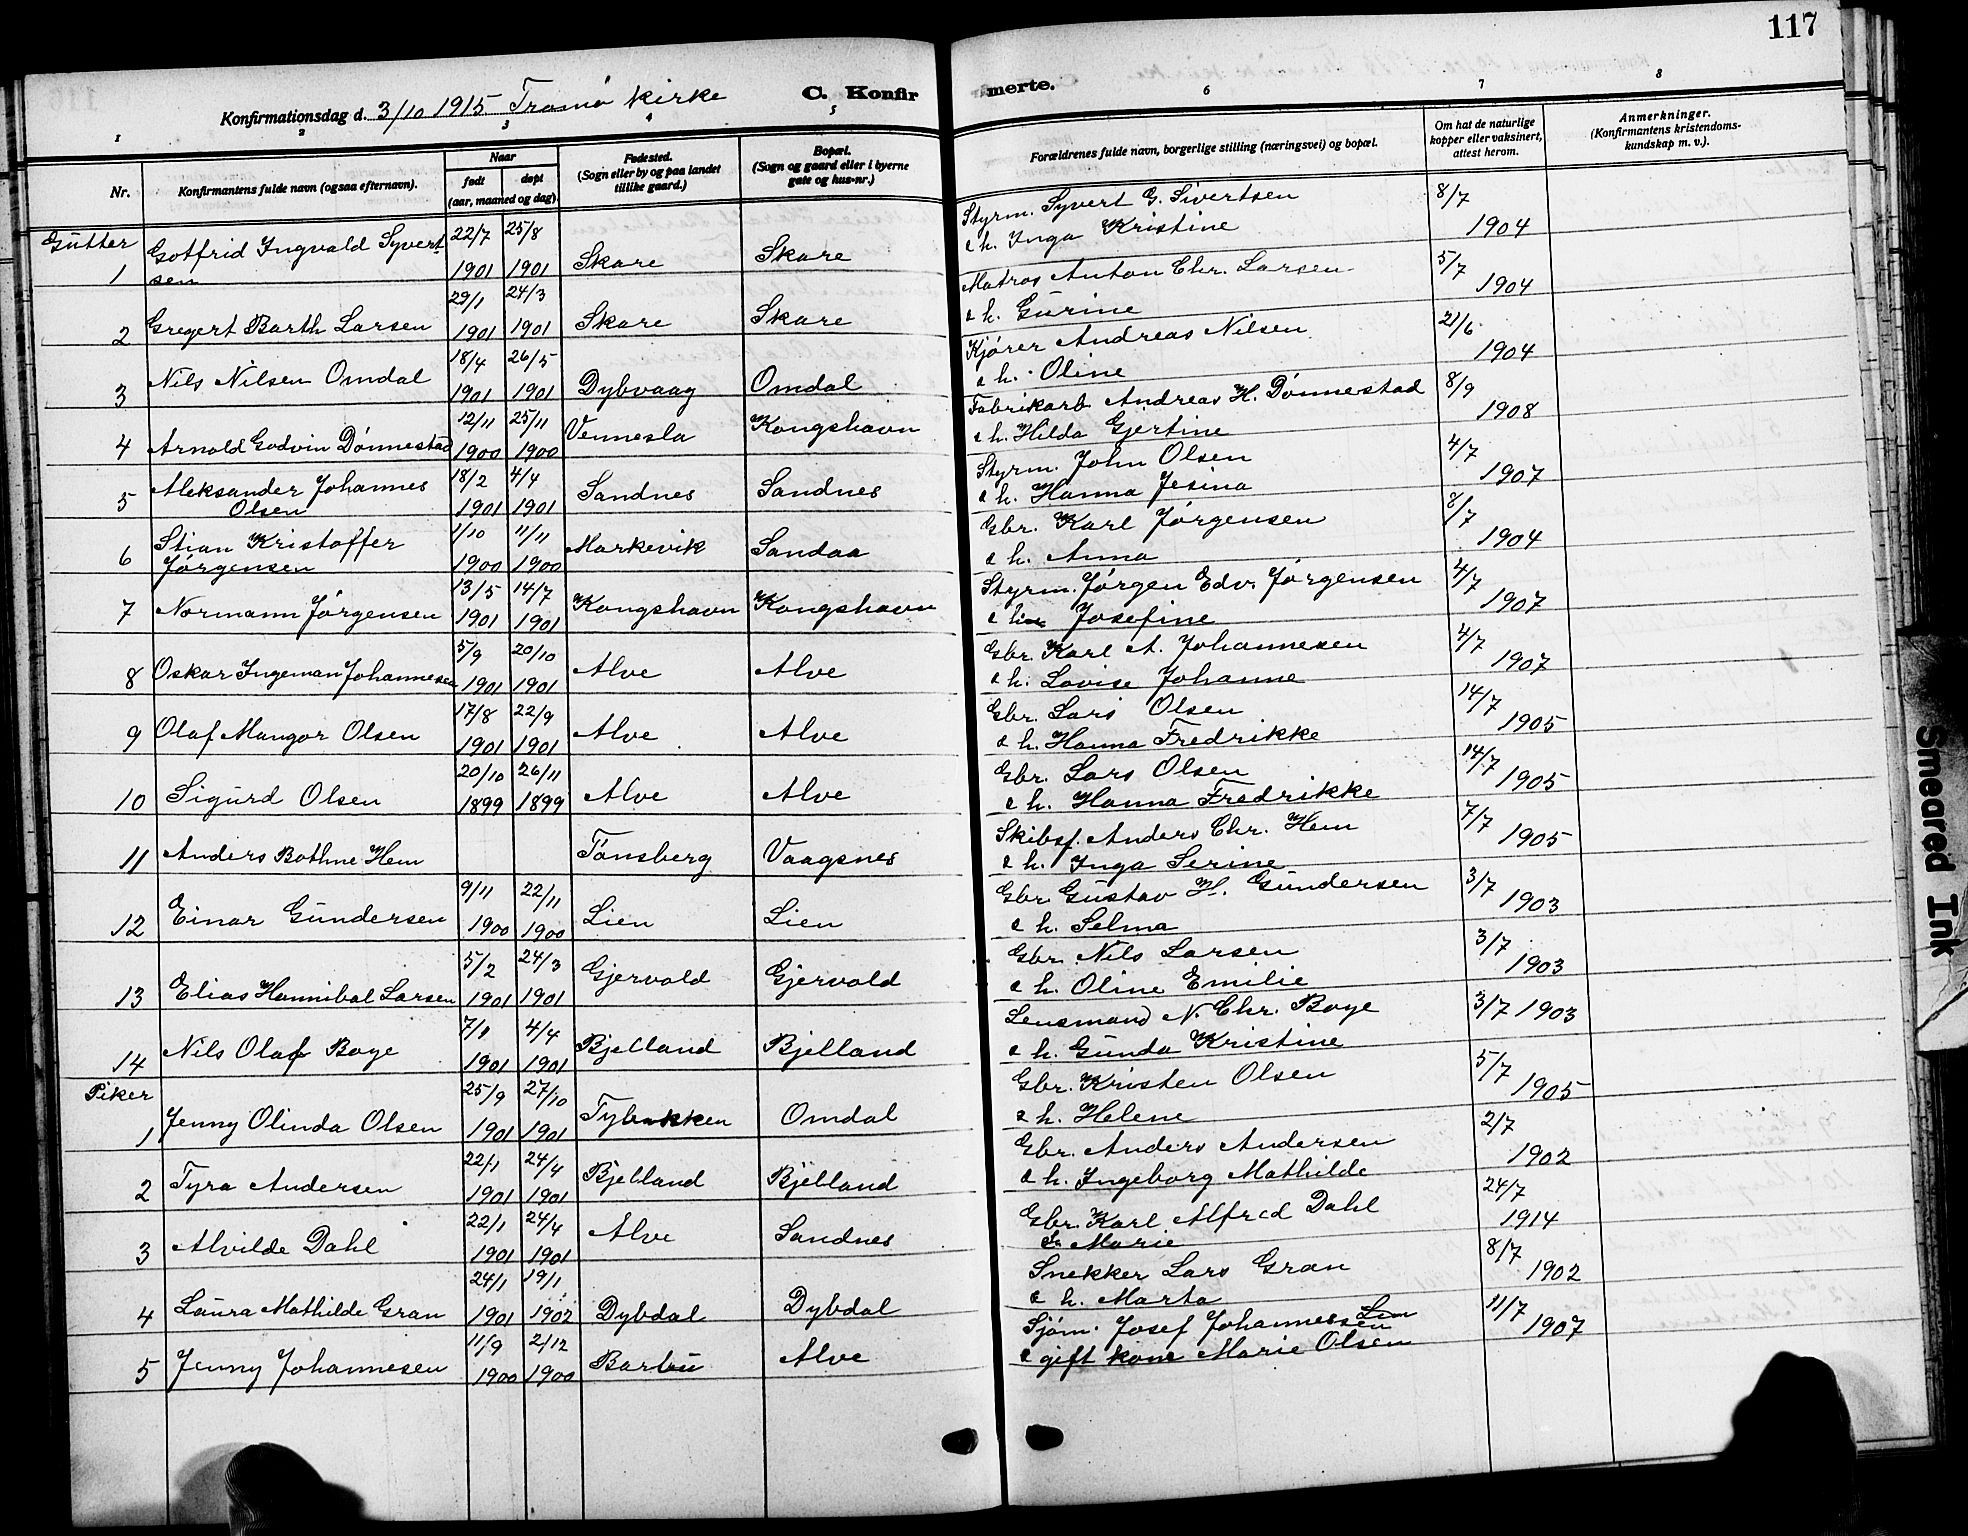 117
Konfirmationsdag d. 3/10 1915. Tromø kirke C. Konfirmerte.
1 2 3 4 5 6 7 8
Nr. Konfirmantens fulde navn (ogsaa efternavn). Naar født døpt (aar, maaned og dag). Fødested. (Sogn eller by og paa landet tillike gaard.) Bopæl. (Sogn og gaard eller i byerne gate og hus-nr.) Forældrenes fulde navn, borgerlige stilling (næringsvei) og bopæl. Om hat de naturlige kopper eller vaksinert, attest herom. Anmerkninger. (Konfirmantens kristendomskundskap m. v.).
Gutter
1 Gotfrid Ingvald Syvertsen 22/7 1901 25/8 1901 Skare Skare Styrm. Syvert G. Sivertsen & h. Inga Kristine 8/7 1904
2 Gregert Barth Larsen 29/1 1901 24/3 1901 Skare Skare Matros Anton Chr. Larsen & h. Gurine 5/7 1904
3 Nils Nilsen Omdal 18/4 1901 26/5 1901 Dybvaag Omdal Kjører Andreas Nilsen & h. Oline 21/6 1904
4 Arnold Godvin Dønnestad 12/11 1900 25/11 1900 Vennesla Kongshavn Fabrikarb Andreas H. Dønnestad & h. Hilda Gjertine 8/9 1908
5 Aleksander Johannes Olsen 18/2 1901 4/4 1901 Sandnes Sandnes Styrm. John Olsen & h. Hanna Jesina 4/7 1907
6 Stian Kristoffer Jørgensen 1/10 1900 11/11 1900 Markevik Sandaa Gbr. Karl Jørgensen & h. Anna 8/7 1904
7 Normann Jørgensen 13/5 1901 14/7 1901 Kongshavn Kongshavn Styrm. Jørgen Edv. Jørgensen & h. Josefine 4/7 1907
8 Oskar Ingeman Johannesen 5/9 1901 20/10 1901 Alve Alve Gbr. Karl A. Johannesen & h. Lovise Johanne 4/7 1907
9 Olaf Mangor Olsen 17/8 1901 22/9 1901 Alve Alve Gbr. Lars Olsen & h. Hanna Fredrikke 14/7 1905
10 Sigurd Olsen 20/10 1899 26/11 1899 Alve Alve Gbr. Lars Olsen & h. Hanna Fredrikke 14/7 1905
11 Anders Bothne Hem Tønsberg Vaagsnes Skibsf. Anders Chr. Hem & h. Inga Serine 7/7 1905
12 Einar Gundersen 9/11 1900 22/11 1900 Lien Lien Gbr Gustav H. Gundersen & h. Selma 3/7 1903
13 Elias Hannibal Larsen 5/2 1901 24/3 1901 Gjervold Gjervold Gbr. Nils Larsen & h. Oline Emilie 3/7 1903
14 Nils Olaf Boye 7/1 1901 4/4 1901 Bjelland Bjelland Lensmand N. Chr. Boye & h. Gunda Kristine 3/7 1903
Piker
1 Jenny Olinda Olsen 25/9 1901 27/10 1901 Tybakken Omdal Gbr. Kristen Olsen & h. Helene 5/7 1905
2 Tyra Andersen 22/1 1901 24/4 1901 Bjelland Bjelland Gbr. Anders Andersen & h. Ingeborg Mathilde 2/7 1902
3 Alvilde Dahl 22/1 1901 24/4 1901 Alve Sandnes Gbr. Karl Alfred Dahl Marie 24/7 1914
4 Laura Mathilde Gran 24/1 1901 19/1 1902 Dybdal Dybdal Snekker Lars Gran & h. Marta 8/7 1902
5 Jenny Johannesen 11/9 1900 2/12 1900 Barbu Alve Sjøm. Josef Johannessen & gift kone Marie Olsen 11/7 1907
Smeared Ink